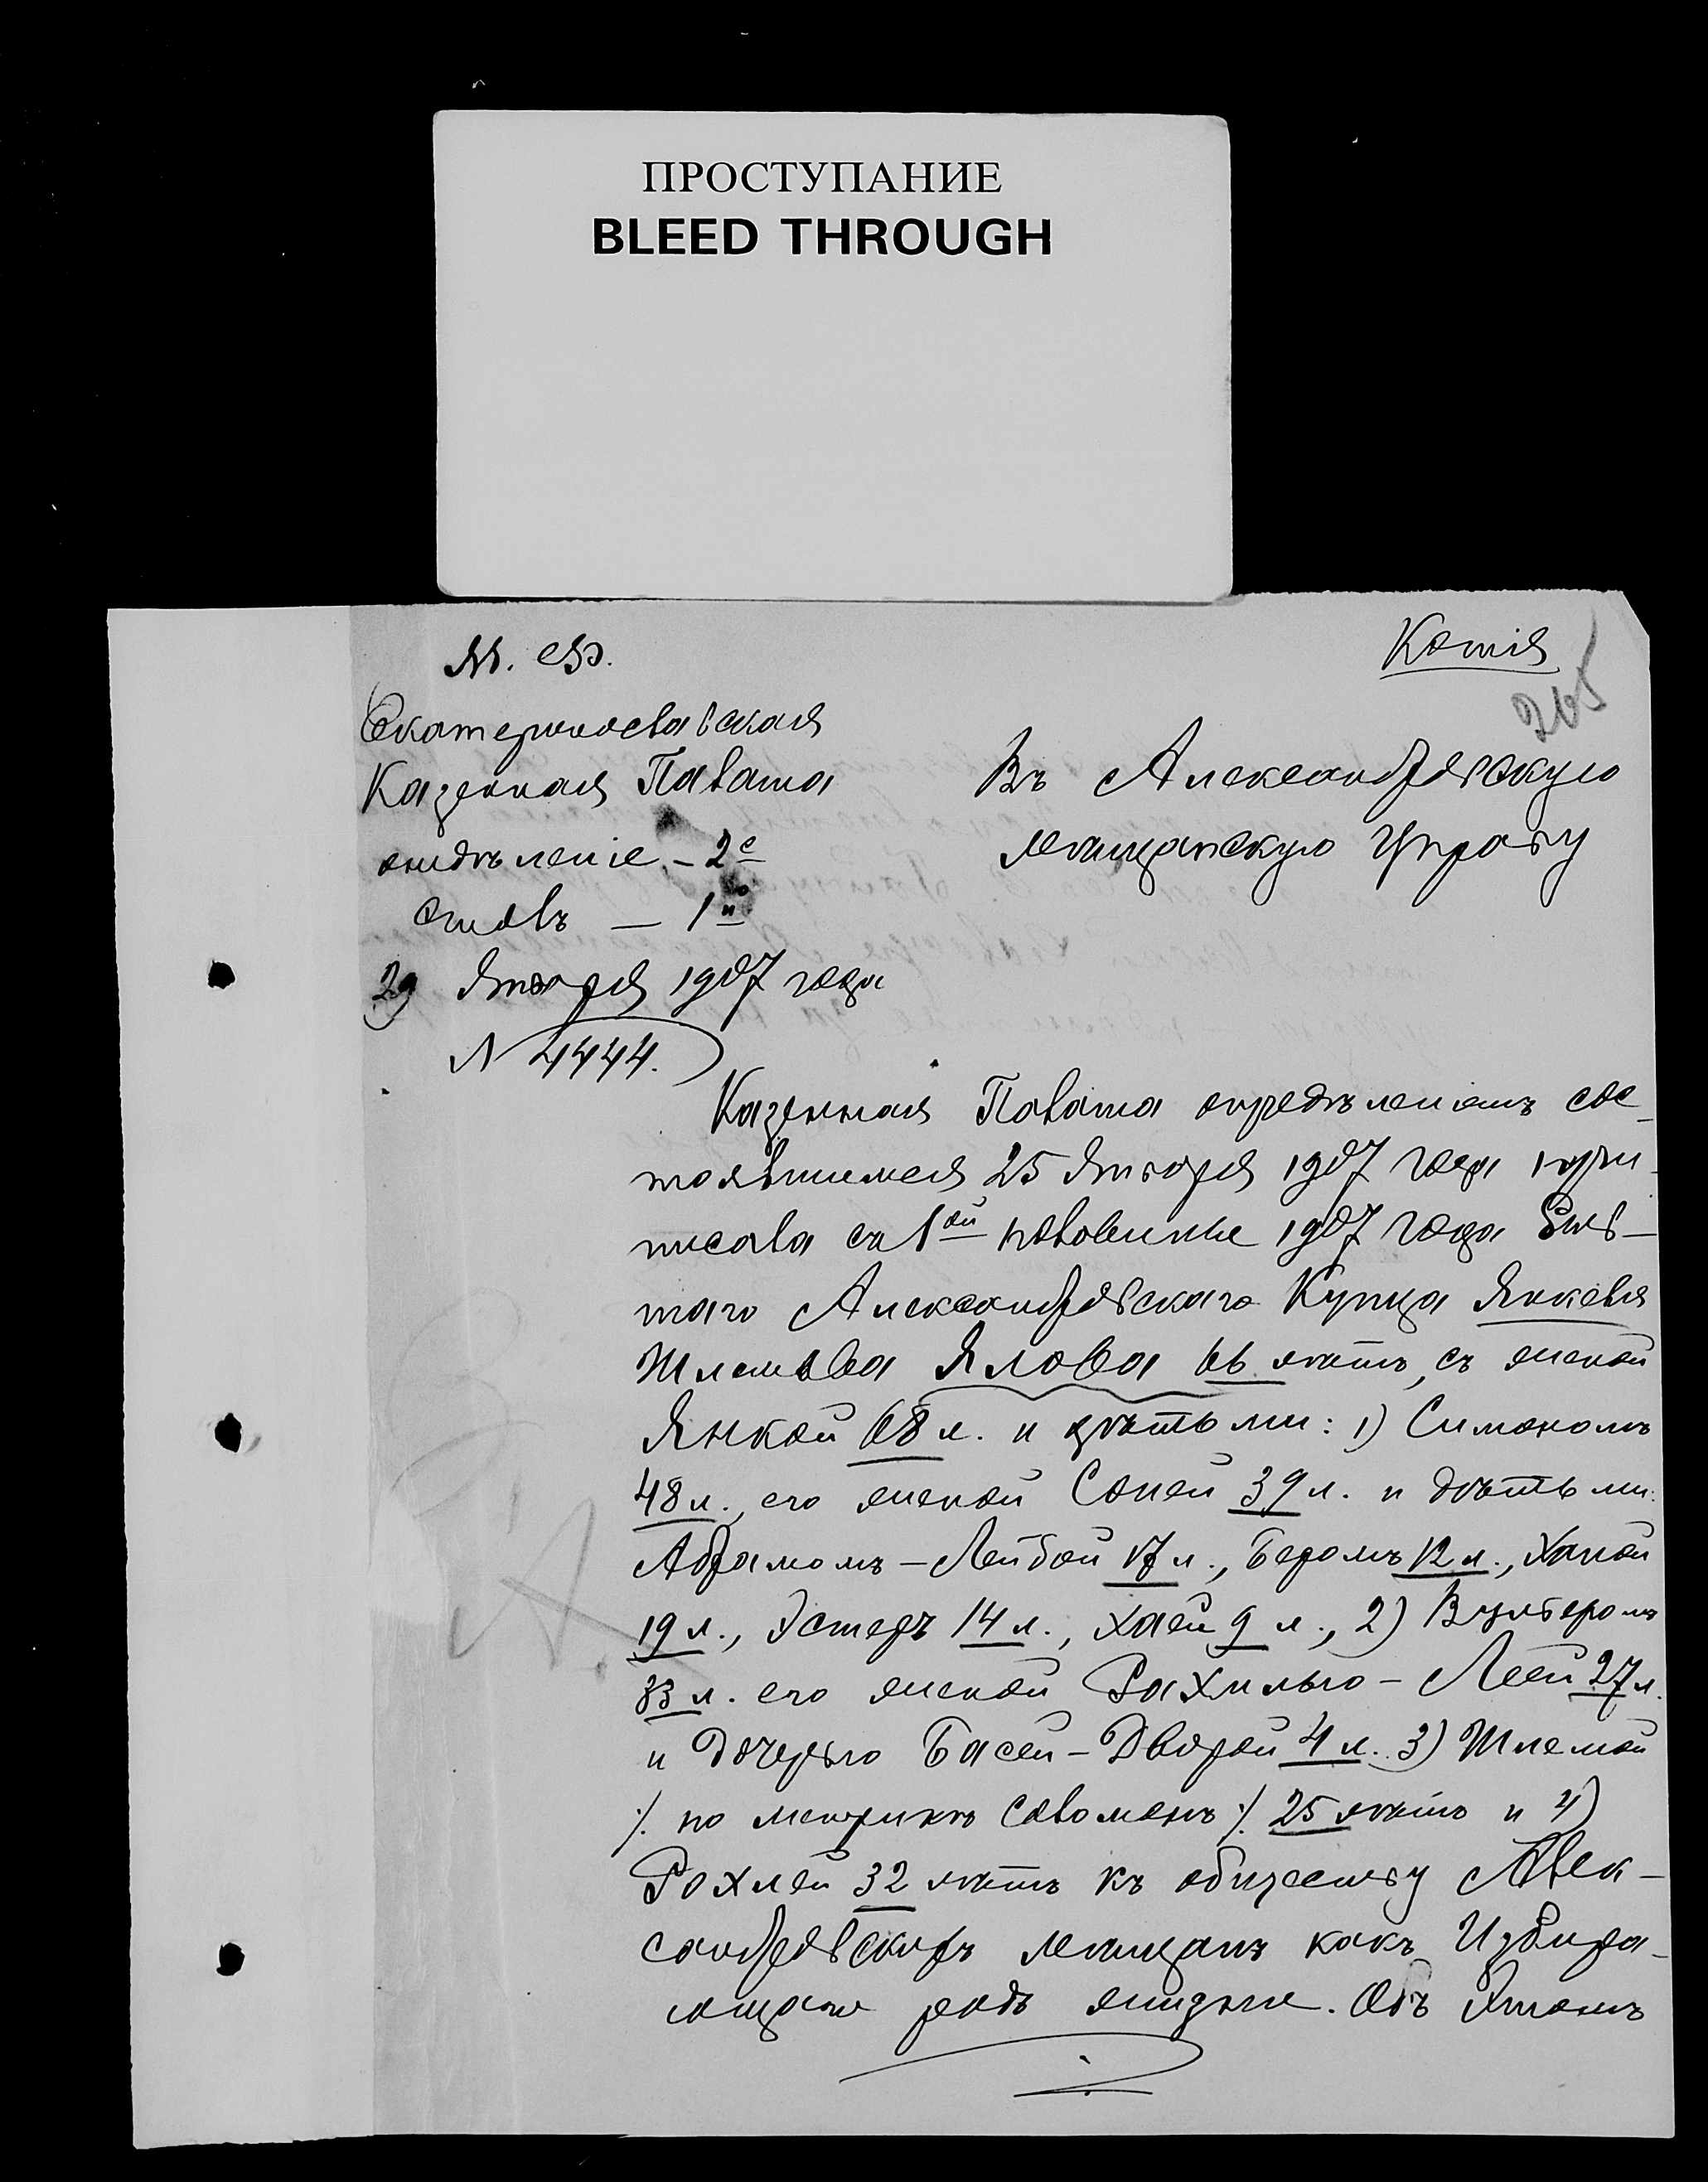 ПРОСТУПАНИЕ
BLEED THROUGH
Копія
265
М. Ф.
Екатеринославская
Казенная Палата
отдѣленіе – 2е
столъ – 1й
29 Января 1907 года
N 4444.
Въ Александровскую
мѣщанскую Управу
Казенная Палата опредѣленіемъ сос-
тоявшимся 25 Января 1907 года при-
писала съ 1ой половины 1907 года быв-
шаго Александровскаго Купца Янкеля
Шлемова Ялова 66 лѣтъ, съ женой
Янкой 68 л. и дѣтьми: 1) Симономъ
48 л., его женой Соней 39 л. и дѣтьми:
Абрамомъ-Лейбой 17 л., Беромъ 12 л., Ханой
19 л., Эстеръ 14 л., Хаей 9 л., 2)
33 л. его женой Рахилью-Леей 27 л.
и дочерью Басей-Дворой 4 л. 3) Шлемой
/. по метрикѣ Соломонъ ./ 25 лѣтъ и 4)
Рохлей 32 лѣтъ къ обществу Алек-
сандровскихъ мѣщанъ какъ Избира-
ющаго родъ жизни. Объ Этомъ